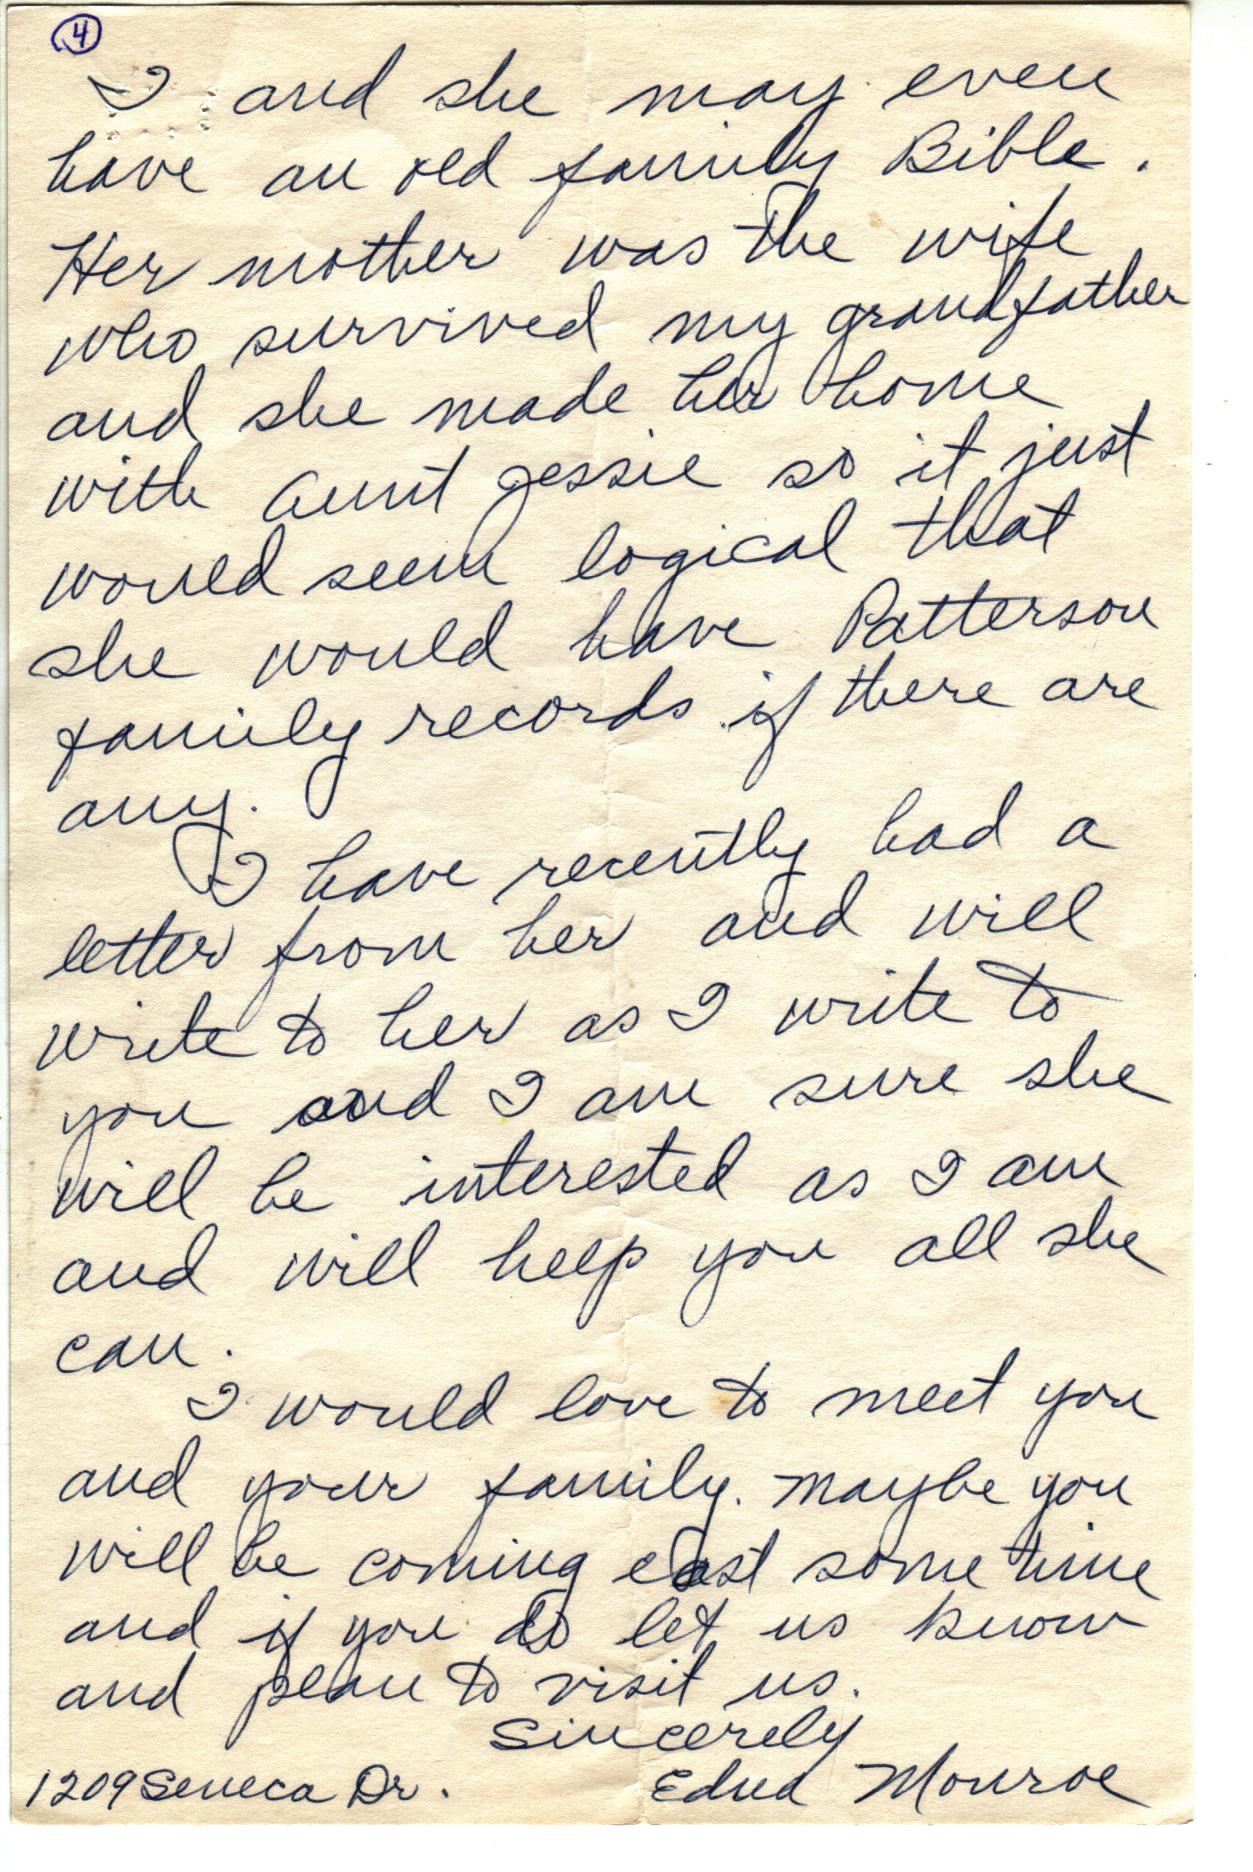 4
I and she may even
have an old family Bible.
Her mother was the wife
who survived my grandfather
and she made her home
with Aunt Jessie so it just
would seem logical that
she would have Patterson
family records if there are
any.
I have recently had a
letter from her and will
write to her as I write to
you and I am sure she
will be interested as I am
and will help you all she
can.
I would love to meet you
and your family. Maybe you
will be coming east some time
and if you do let us know
and plan to visit us.
Sincerely
1209 Seneca Dr. Edna Monroe